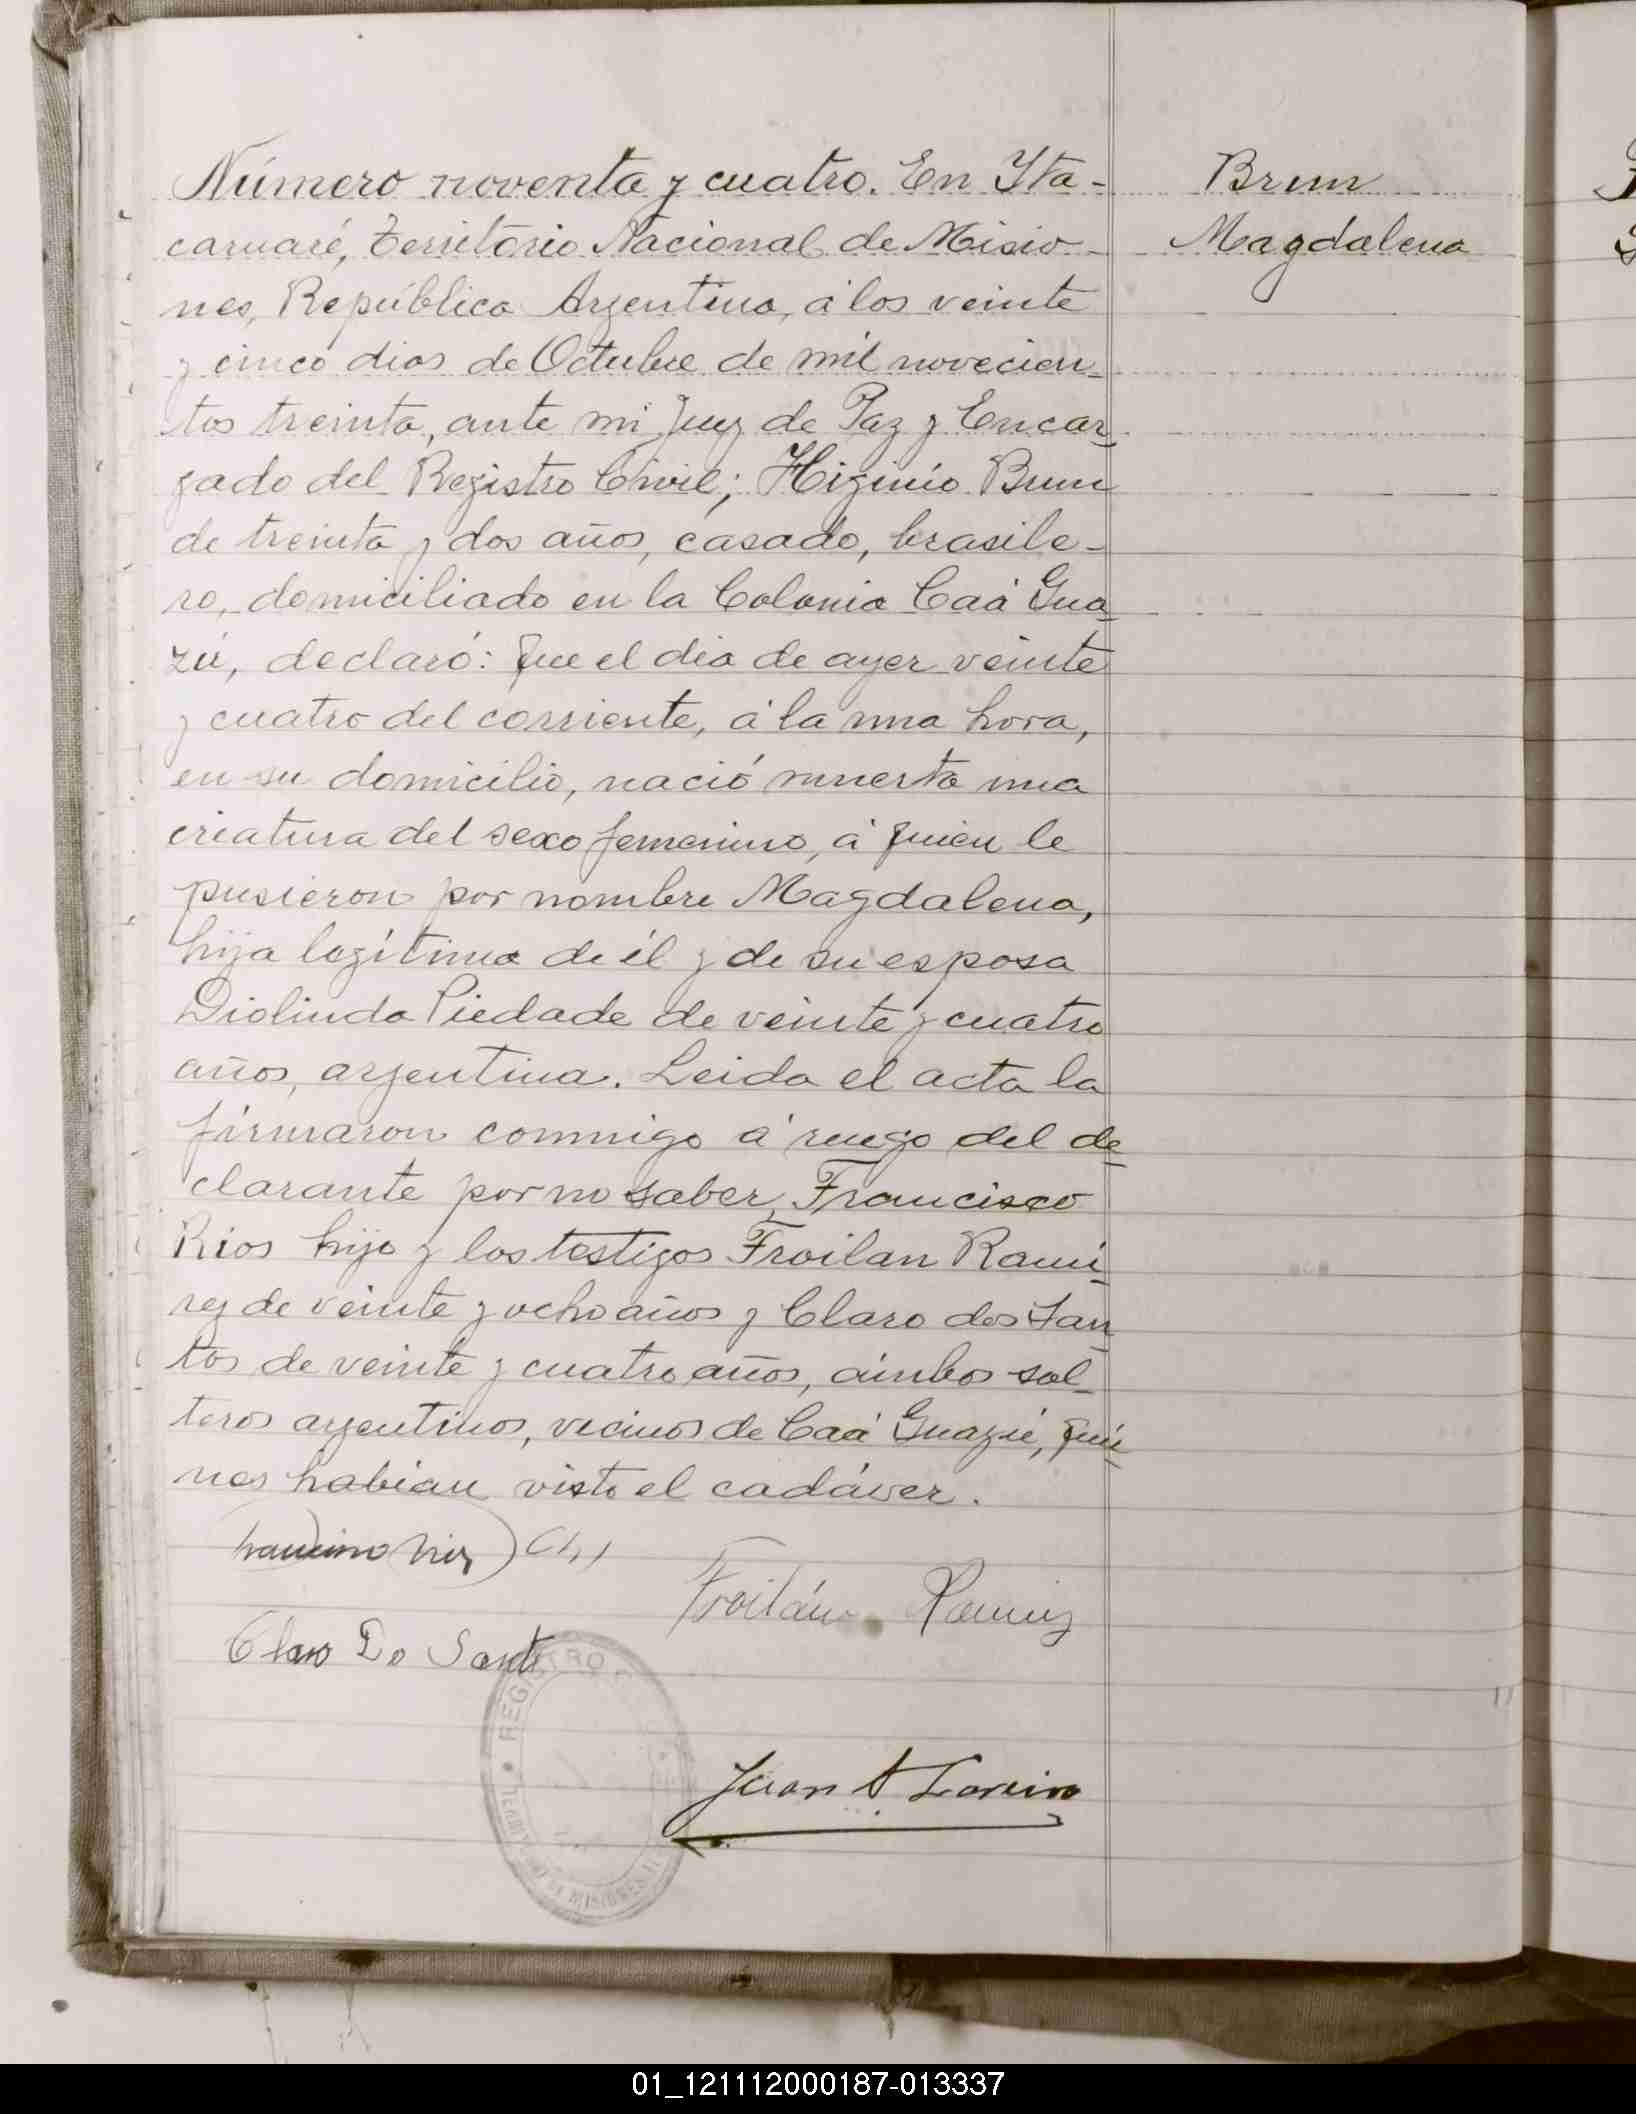 Número noventa y cuatro. En Ita-
caruaré, Territorio Nacional de Misio-
nes, República Argentina, á los veinte
y cinco dias de Octubre de mil novecien-
tos treinta, ante mi Juez de Paz y Encar-
gado del Registro Civil; Higinio Brun
de treinta y dos años, casado, brasile-
ro, domiciliado en la Colonia Caá Gua-
zú, declaró: Que el dia de ayer veinte
y cuatro del corriente, á la una hora,
en su domicilio, nació muerta una
criatura del sexo femenino, á quien le
pusieron por nombre Magdalena,
hija legítima de él y de su esposa
Diolinda Piedade de veinte y cuatro
años, argentina. Leida el acta la
firmaron conmigo á ruego del de-
clarante por no saber, Francisco
Rios hijo y los testigos Froilan Rami-
rez de veinte y ocho años y Claro dos San-
tos de veinte y cuatro años, ámbos sol-
teros argentinos, vecinos de Caá Guazú, quie-
nes habian visto el cadáver.
Froilán Ramirez
Claro Do Santo
REGISTRO
TERRITORIO DE MISIONES
Juan A
Brun
Magdalena
01_121112000187-013337